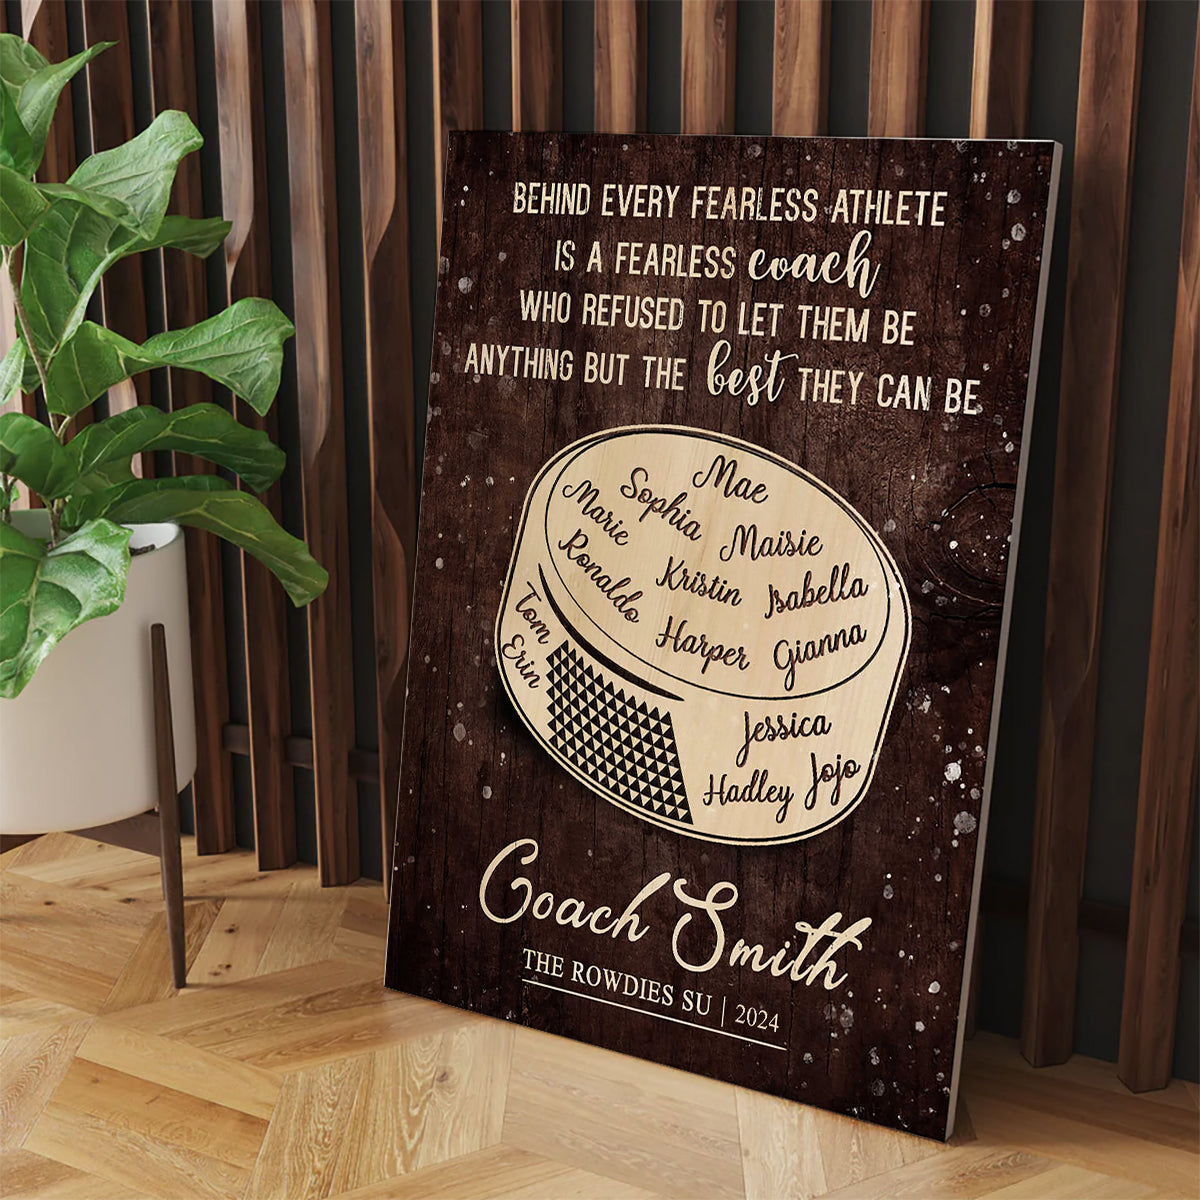 BEHIND EVERY FEARLESS ATHLETE
IS A FEARLESS coach
WHO REFUSED TO LET THEM BE
ANYTHING BUT THE best THEY CAN BE
Mae
Sophia
Marie
Maisie
Ronaldo
Kristin
Isabella
Harper
Gianna
Tom
Erin
Jessica
Hadley
Jojo
Coach Smith
THE ROWDIES SU | 2024